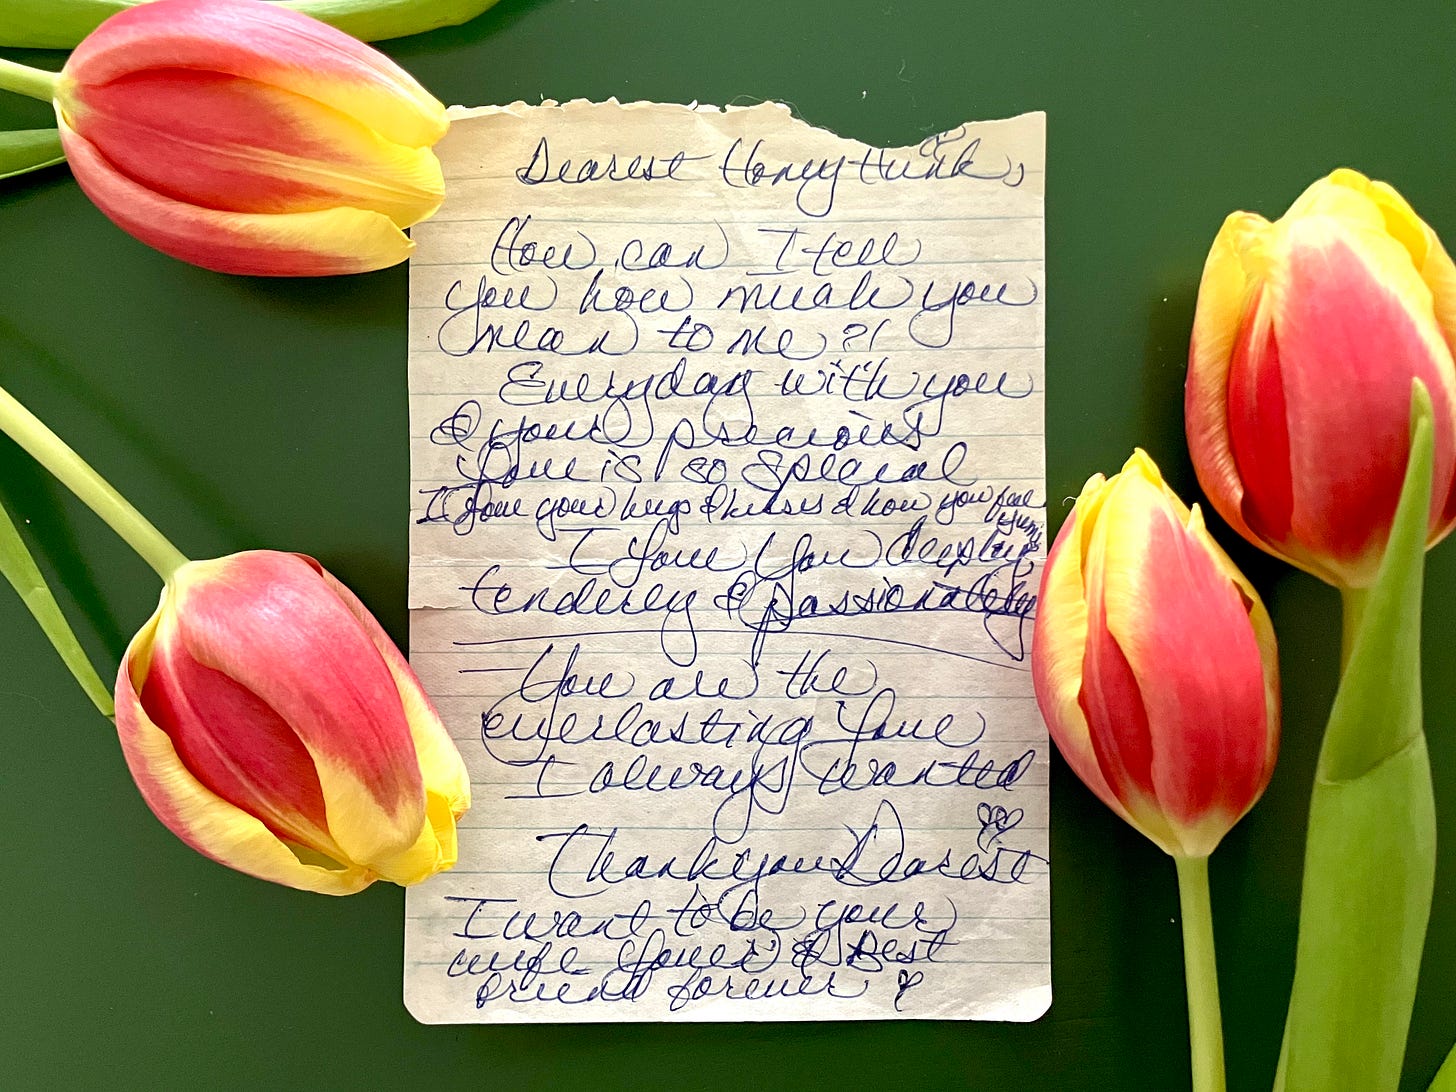 Dearest Honey Hunk,
How can I tell
you how much you
mean to me?!
Everyday with you
& your precious
love is so special
I love your hugs & kisses & how you feel
I love you deeply,
tenderly & passionately
You are the
everlasting love
I always wanted
Thank you Dearest
I want to be your
wife lover & Best
friend forever